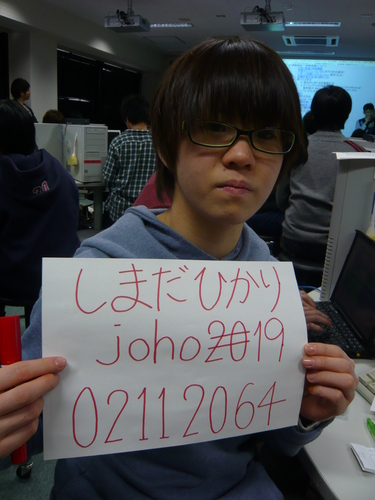 しまだひかり
joho2019
02112064